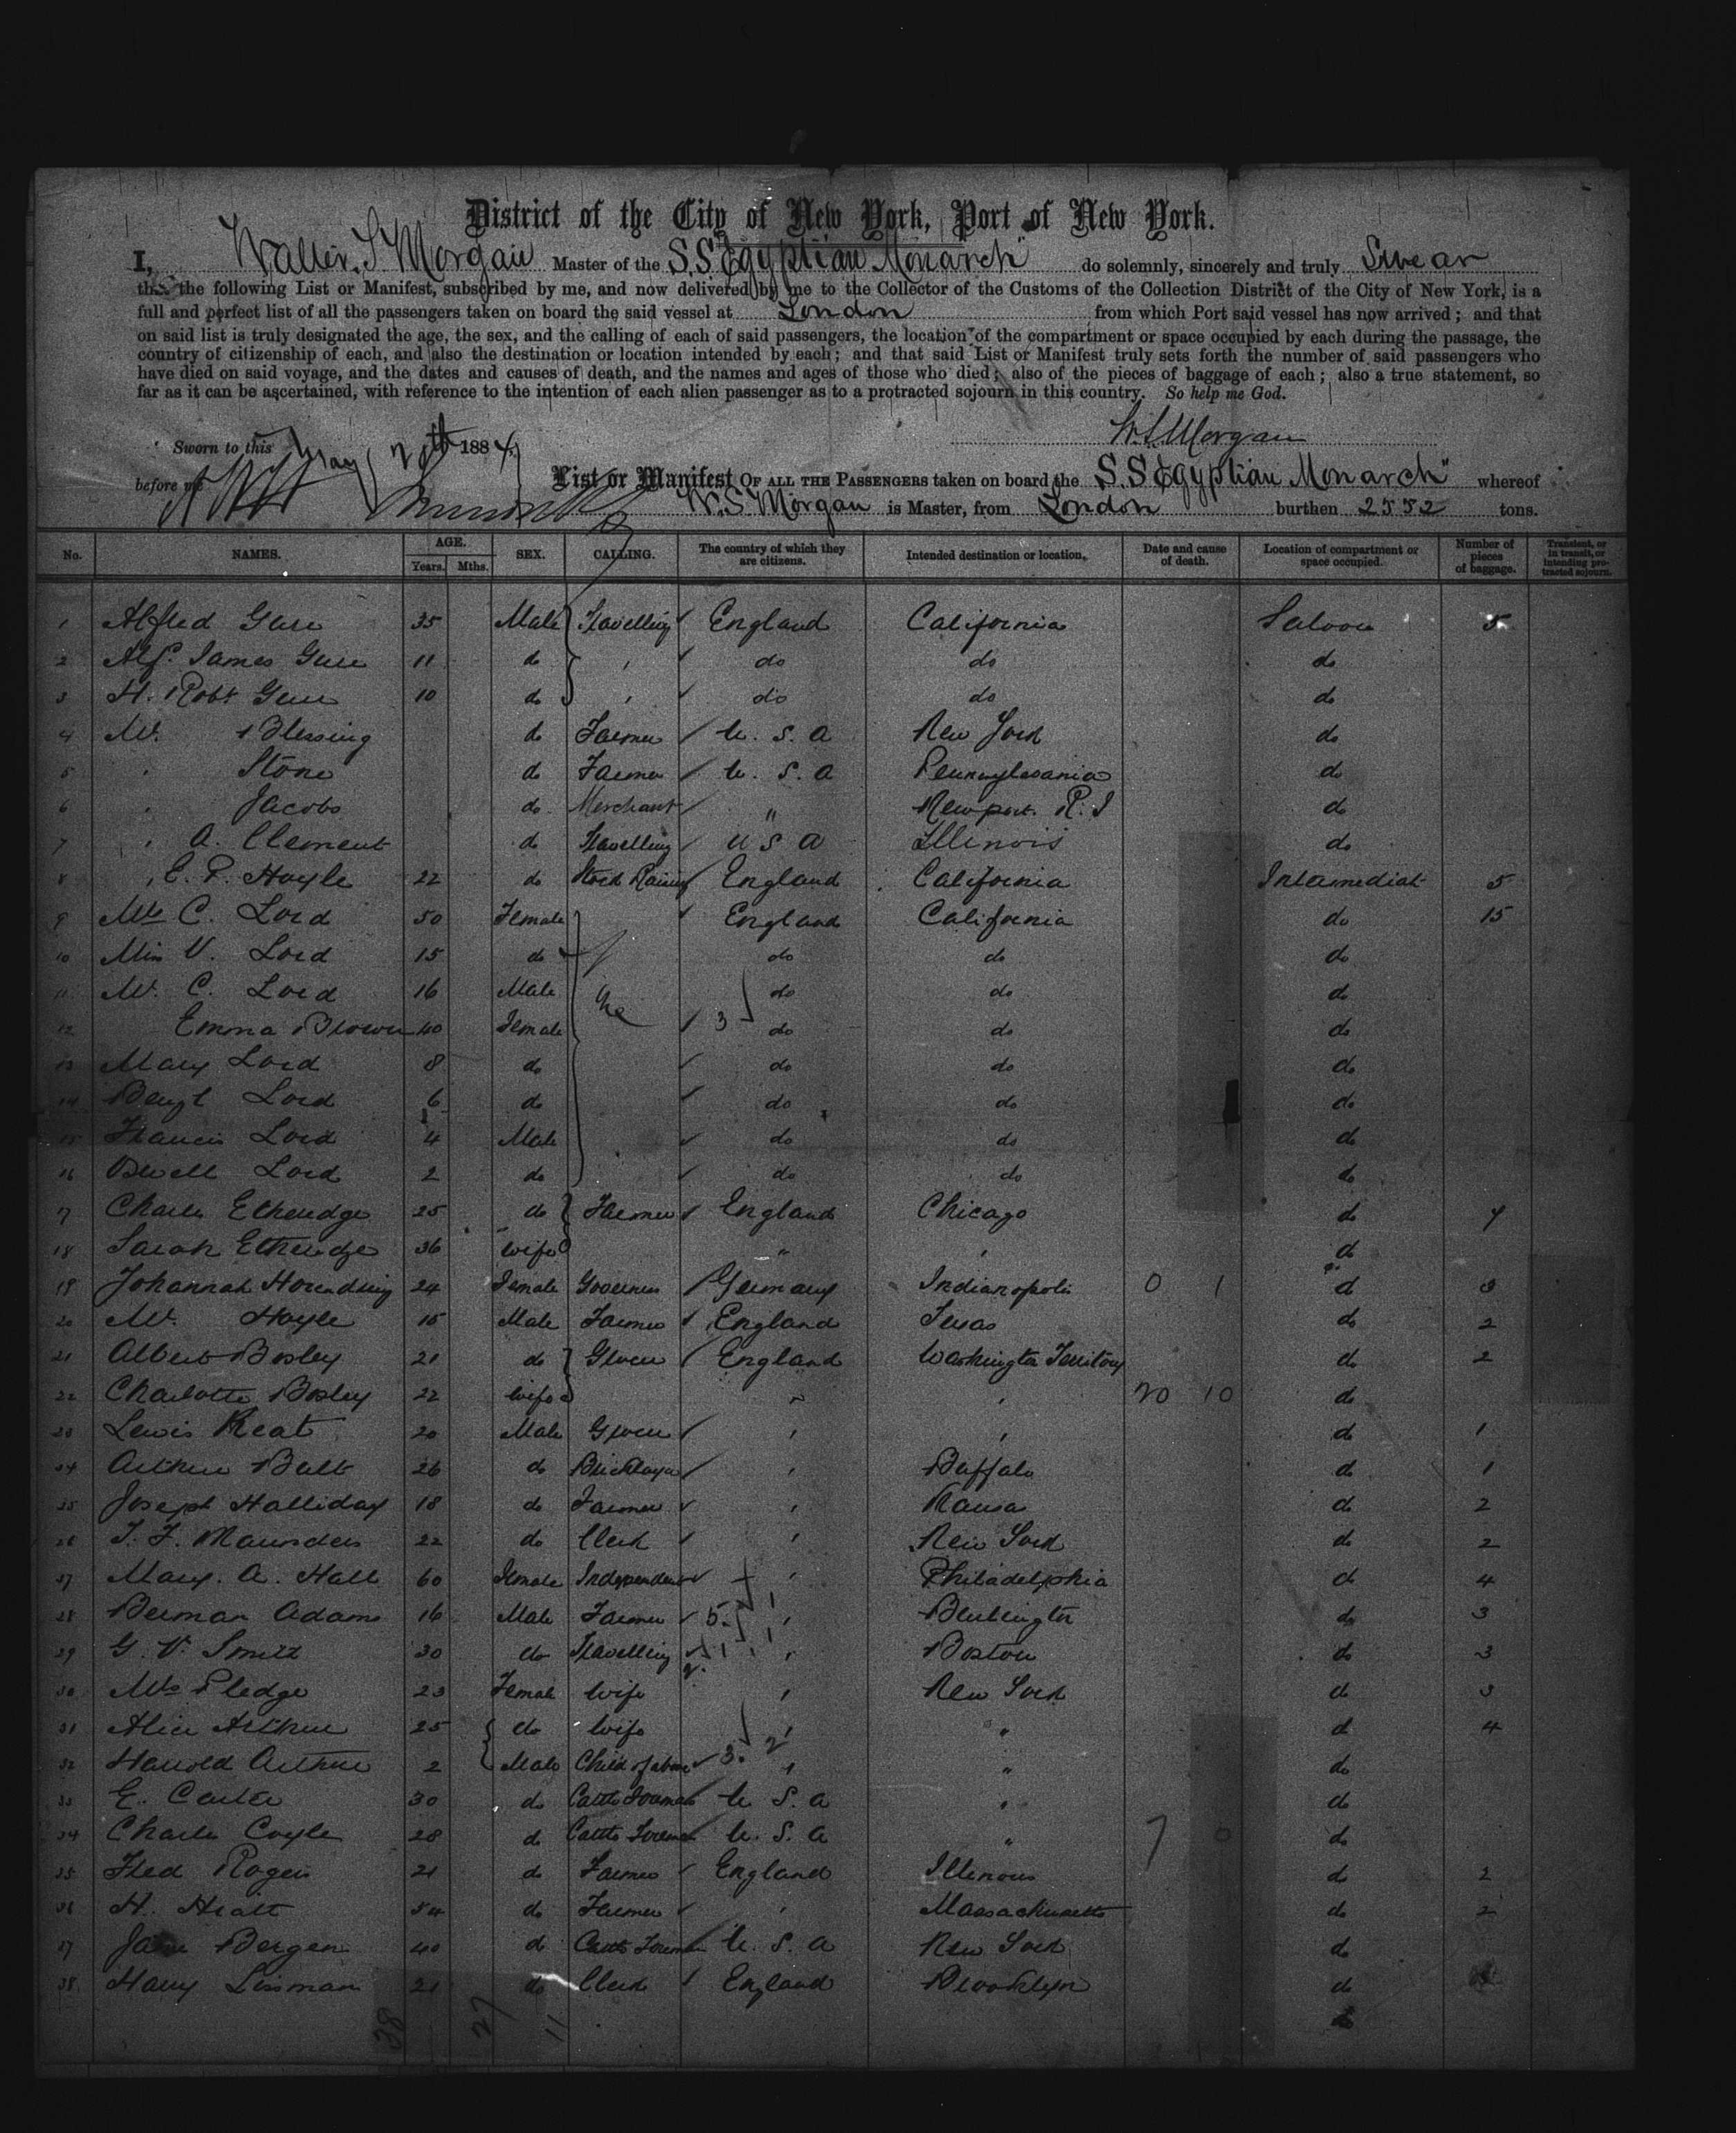 District of the City of New York, Port of New York.
I, Walter S Morgan Master of the S.S "Egyptian Monarch" do solemnly, sincerely and truly Swear
that the following List or Manifest, subscribed by me, and now delivered by me to the Collector of the Customs of the Collection District of the City of New York, is a
full and perfect list of all the passengers taken on board the said vessel at London from which Port said vessel has now arrived; and that
on said list is truly designated the age, the sex, and the calling of each of said passengers, the location of the compartment or space occupied by each during the passage, the
country of citizenship of each, and also the destination or location intended by each; and that said List or Manifest truly sets forth the number of said passengers who
have died on said voyage, and the dates and causes of death, and the names and ages of those who died; also of the pieces of baggage of each; also a true statement, so
far as it can be ascertained, with reference to the intention of each alien passenger as to a protracted sojourn in this country. So help me God.
W.S. Morgan
Sworn to this May 20th 1884
before me
List or Manifest OF ALL THE PASSENGERS taken on board the S.S Egyptian Monarch" whereof
W.S. Morgan is Master, from London burthen 2552 tons.
No. NAMES. AGE. Years. Mths. SEX. CALLING. The country of which they are citizens. Intended destination or location. Date and cause of death. Location of compartment or space occupied. Number of pieces of baggage. Transient, or in transit, or intending protracted sojourn.
1 Alfred 35 Male Travelling England California Saloon 5
2 Alf. James 11 do do do do
3 H. Robt 10 do do do do
4 Mr. Blessing do Farmer U. S. A New York do
5 Stone do Farmer U. S. A Pennsylvania do
6 Jacobs do Merchant " Newport. R. I do
7 A. Clement do Travelling U S A Illinois do
8 E. P. Hoyle 22 do Stock Raising England California Intermediate 5
9 Mrs C. Lord 50 Female England California do 15
10 Miss V. Lord 15 do do do do
11 Mr. C. Lord 16 Male do do do
12 Emma Brown 40 Female 3 do do do
13 Mary Lord 8 do do do do
14 Lord 6 do do do do
15 Francis Lord 4 Male do do do
16 Lord 2 do do do do
17 Charles Etheridge 25 do Farmer England Chicago do 4
18 Sarah Etheridge 36 wife " do
19 Johannah 24 Female Governess Germany Indianapolis 0 1 d 3
20 Mr. Hoyle 15 Male Farmer England Texas do 2
21 Albert Bosley 21 do Grocer England Washington Territory do 2
22 Charlotte Bosley 22 wife " 20 10 do
23 Lewis Keat 20 Male Grocer d 1
24 Arthur Batt 26 do Bricklayer Buffalo d 1
25 Joseph Halliday 18 do Farmer Kansas d 2
26 T. F. 22 do Clerk New York d 2
27 Mary. A. Hall 60 Female Independent Philadelphia d 4
28 Adams 16 Male Farmer 5 Burlington do 3
29 G. V. Smith 30 do Travelling Boston do 3
30 Mrs Pledge 23 Female wife New York d 3
31 Alice Arthur 25 do wife " d 4
32 Harrold Arthur 2 Male Child of above 3. " do
33 E. Carter 30 do Cattle Foreman U. S. A " do
34 Charles Coyle 28 d Cattle Foreman U. S. A " 7 0 do
35 Fred Rogers 21 do Farmer England Illinois d 2
36 H. Hiatt 54 do Farmer Massachusetts do 2
37 Bergen 40 d Cattle Foreman U. S. A New York do
38 Harry Lissman 21 do Clerk England Brooklyn do
38 27 11